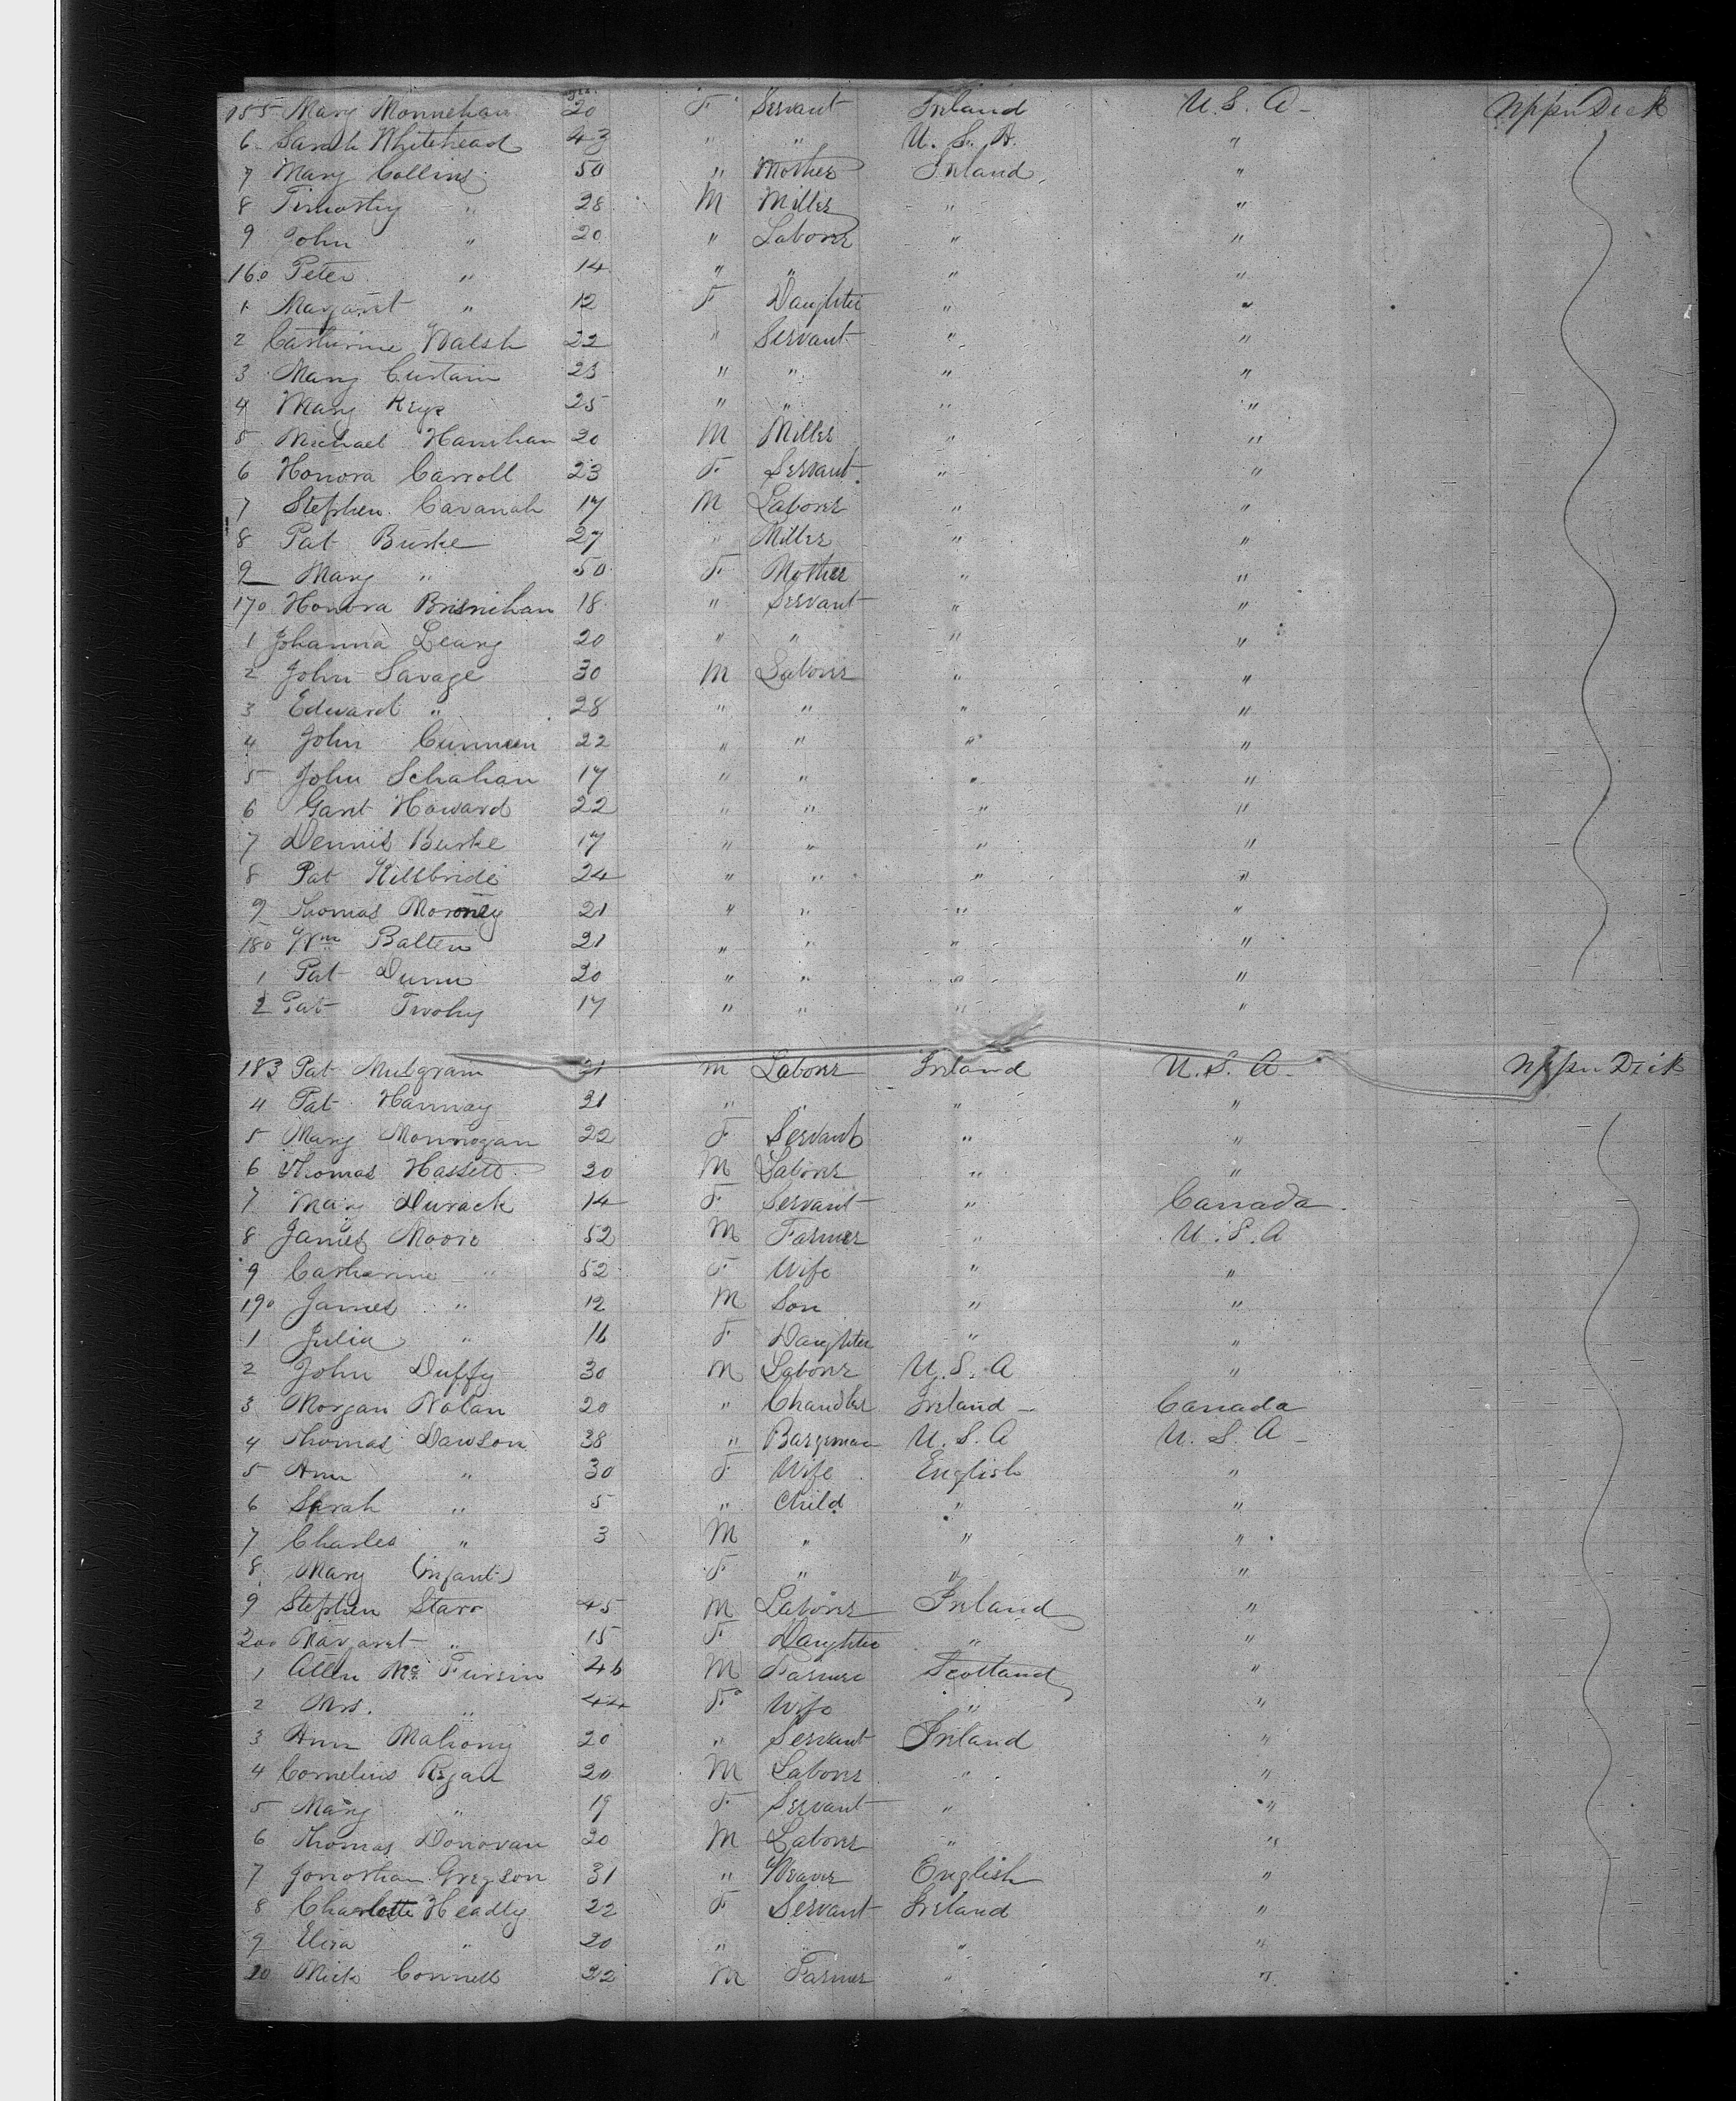 yrs.
155 Mary Monnehan 20 F Servant Ireland U. S. A - Upper Deck
6 Sarah Whitehead 43 " " U. S. A. "
7 Mary Collins 50 " Mother Ireland "
8 Timothy " 28 M Miller " "
9 John " 20 " Laborer " "
160 Peter " 14 " " " "
1 Margaret " 12 F Daughter " "
2 Catherine Walsh 22 " Servant " "
3 Mary Curtain 23 " " " "
4 Mary Keyes 25 " " " "
5 Michael Hanrihan 20 M Miller " "
6 Honora Carroll 23 F Servant " "
7 Stephen Cavanah 17 M Laborer " "
8 Pat Burke 27 " Miller " "
9 Mary " 50 F Mother " "
170 Honora Brisnihan 18 " Servant " "
1 Johanna Leary 20 " " " "
2 John Savage 30 M Laborer " "
3 Edward " 28 " " " "
4 John Cunneen 22 " " " "
5 John Schahan 17 " " " "
6 Garrt Howard 22 " " " "
7 Dennis Burke 17 " " " "
8 Pat Killbride 24 " " " "
9 Thomas Moroney 21 " " " "
180 Wm Balten 21 " " " "
1 Pat Dunn 20 " " " "
2 Pat Twohy 17 " " " "
183 Pat Mulgram 21 M Laborer Ireland U. S. A - Upper Deck
4 Pat Hannay 21 " " " "
5 Mary Monnogan 22 F Servant " "
6 Thomas Hassett 20 M Laborer " "
7 Mary Durack 14 F Servant " Canada
8 James Moore 52 M Farmer " U. S. A
9 Catherine " 52 F Wife " "
190 James " 12 M Son " "
1 Julia " 16 F Daughter " "
2 John Duffy 30 M Laborer U. S. A "
3 Morgan Nolan 20 " Chandler Ireland - Canada
4 Thomas Dawson 38 " Bargeman U. S. A U. S. A -
5 Ann " 30 F Wife English "
6 Sarah " 5 " Child " "
7 Charles " 3 M " " "
8 Mary (infant) F " " "
9 Stephen Starr 45 M Laborer Ireland "
200 Margaret " 15 F Daughter " "
1 Allen Mc 46 M Farmer Scotland "
2 Mrs. " 44 F Wife " "
3 Ann Mahony 20 " Servant Ireland "
4 Cornelius Regan 20 M Laborer " "
5 Mary " 19 F Servant " "
6 Thomas Donovan 20 M Laborer " "
7 Jonothan Gregson 31 " Weaver English "
8 Charlotte Headly 22 F Servant Ireland "
9 Eliza " 20 " " " "
10 Mick Connell 22 M Farmer " "